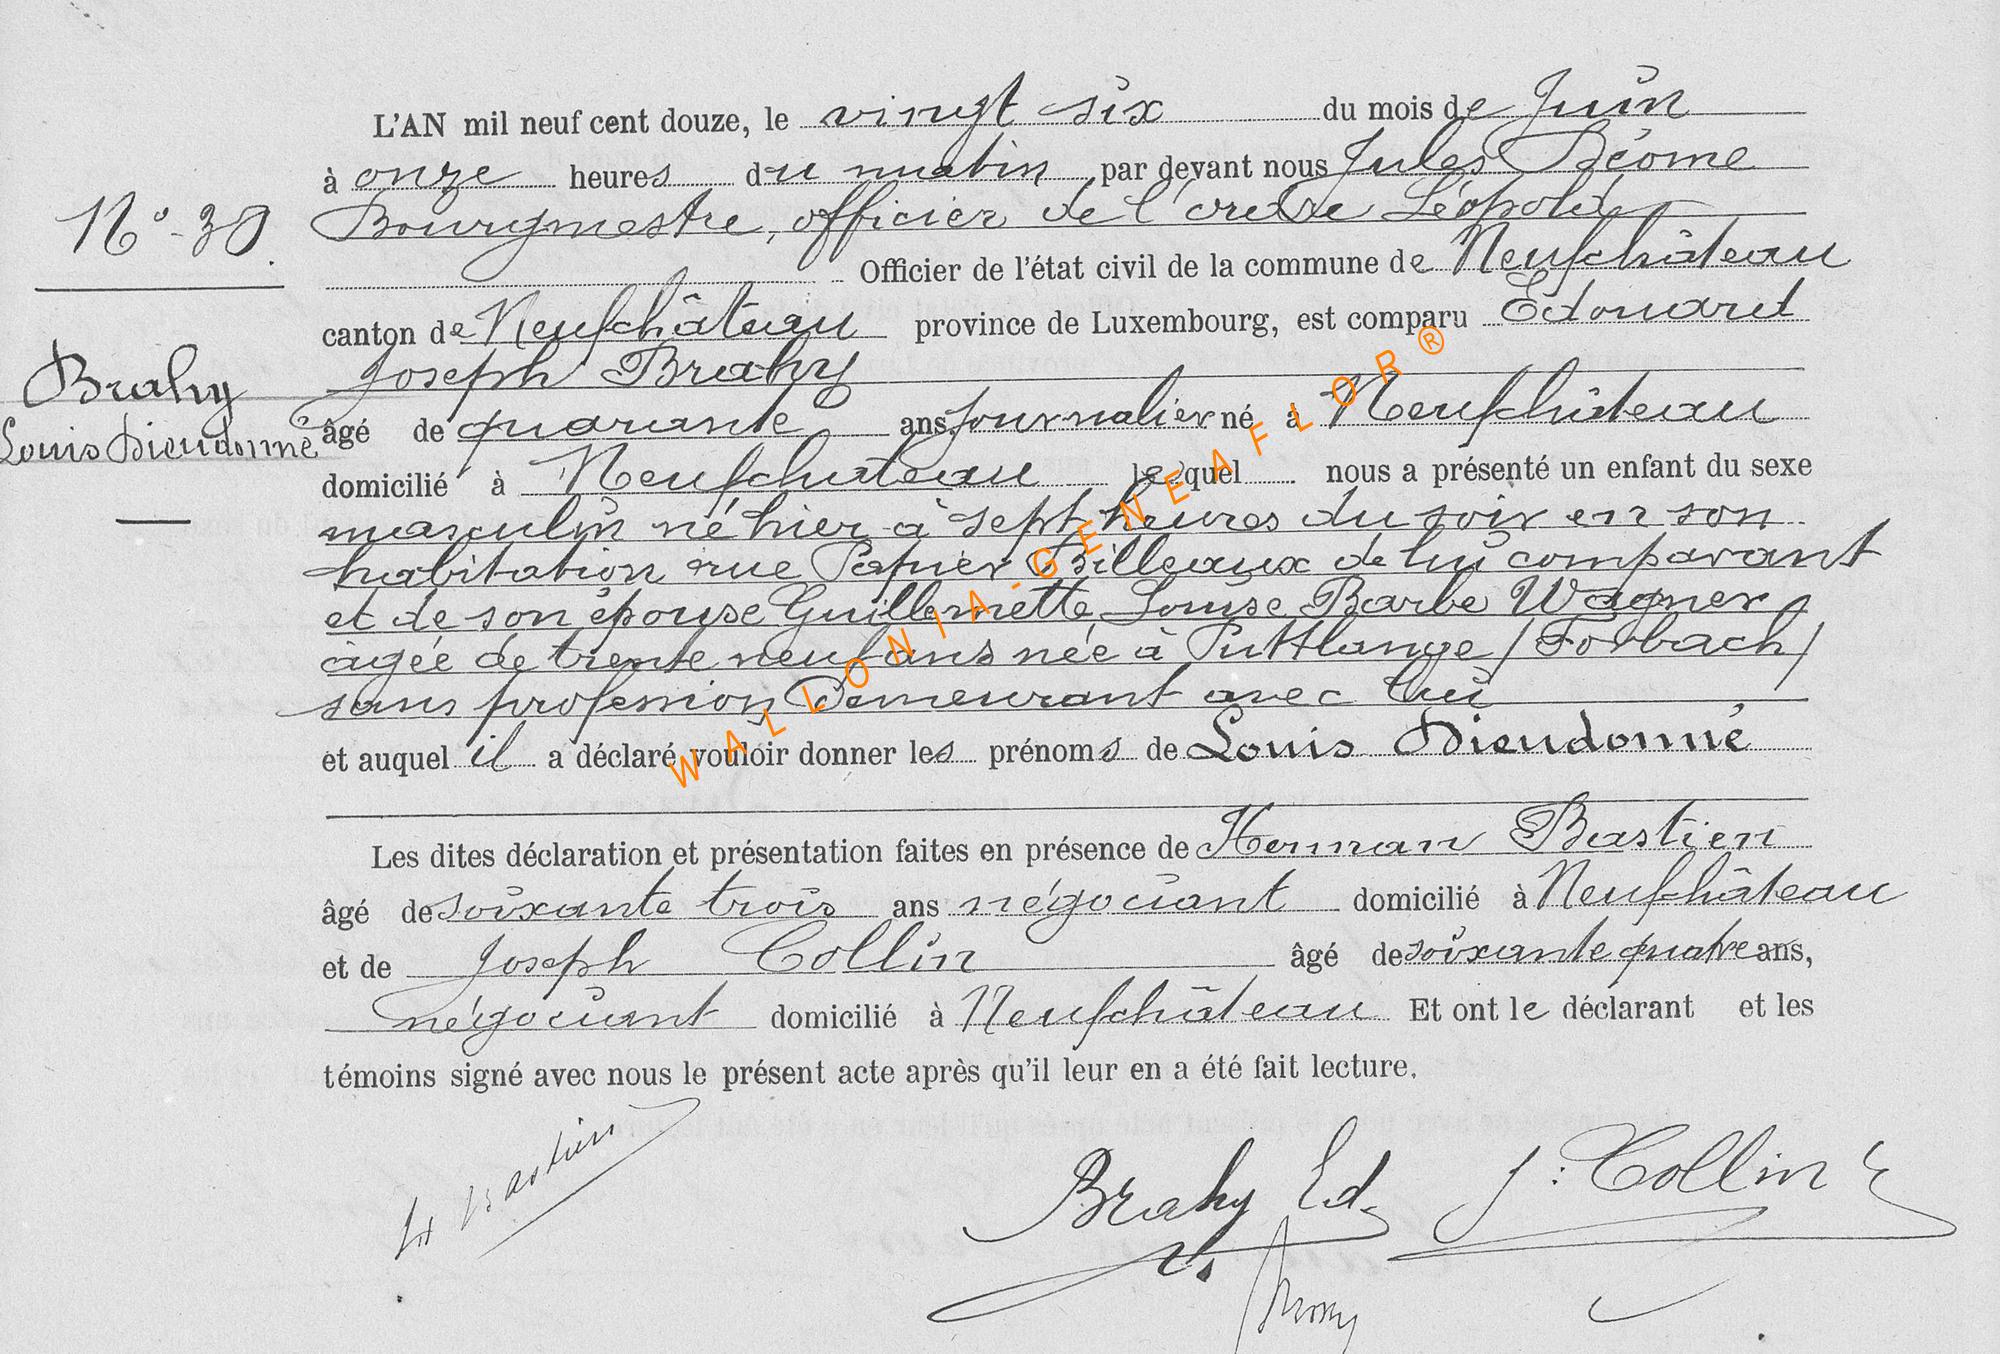 L'AN mil neuf cent douze, le vingt six du mois de Juin
à onze heures du matin par devant nous Jules Déome
Bourgmestre, officier de l'ordre Léopold
N° 30.
Officier de l'état civil de la commune de Neufchâteau
canton de Neufchâteau province de Luxembourg, est comparu Edouard
Joseph Brahy
Brahy
Louis Dieudonné
âgé de quarante ans, journalier né à Neufchâteau
domicilié à Neufchateau lequel nous a présenté un enfant du sexe
masculin né hier à sept heures du soir en son
habitation rue Papier Billeaux de lui comparant
et de son épouse Guillemette Louise Barbe Wagner
âgée de trente neuf ans née à Puttlange / Forbach /
sans profession demeurant avec lui
et auquel il a déclaré vouloir donner les prénoms de Louis Dieudonné
Les dites déclaration et présentation faites en présence de Herman Bastien
âgé de soixante trois ans négociant domicilié à Neufchâteau
et de Joseph Collin âgé de soixante quatre ans,
négociant domicilié à Neufchâteau Et ont le déclarant et les
témoins signé avec nous le présent acte après qu'il leur en a été fait lecture.
WALLONIA-GENEAFLOR®
Bastien
Brahy Ed.
J: Collin